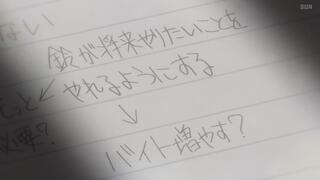 ない
鈴が将来やりたいことを
もっと↙やれるようにする
必要?
↓
バイト増やす?
SUN